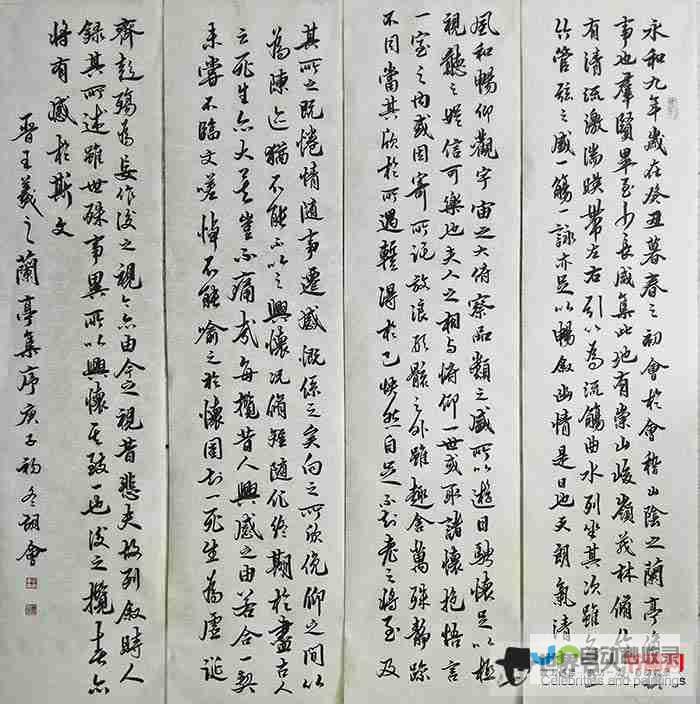 永和九年歲在癸丑暮春之初會於會稽山陰之蘭亭脩禊
事也羣賢畢至少長咸集此地有崇山峻嶺茂林脩竹
有清流激湍暎帶左右引以為流觴曲水列坐其次雖
竹管弦之盛一觴一詠亦足以暢敘幽情是日也天朗氣清
風和暢仰觀宇宙之大俯察品類之盛所以遊目騁懷足以極
視聽之娛信可樂也夫人之相與俯仰一世或取諸懷抱悟言
一室之內或因寄所託放浪形骸之外雖趣舍萬殊靜躁
不同當其欣於所遇蹔得於己快然自足不知老之將至及
其所之既惓情隨事遷感慨係之矣向之所欣俛仰之間以
為陳迹猶不能不以之興懷況脩短隨化終期於盡古人
云死生亦大矣豈不痛哉每攬昔人興感之由若合一契
未嘗不臨文嗟悼不能喻之於懷固知一死生為虛誕
齊彭殤為妄作後之視今亦由今之視昔悲夫故列敘時人
錄其所述雖世殊事異所以興懷其致一也後之攬者亦
將有感於斯文
晉王羲之蘭亭集序庚子初冬會
自动秒收录
Celebrities and paintings